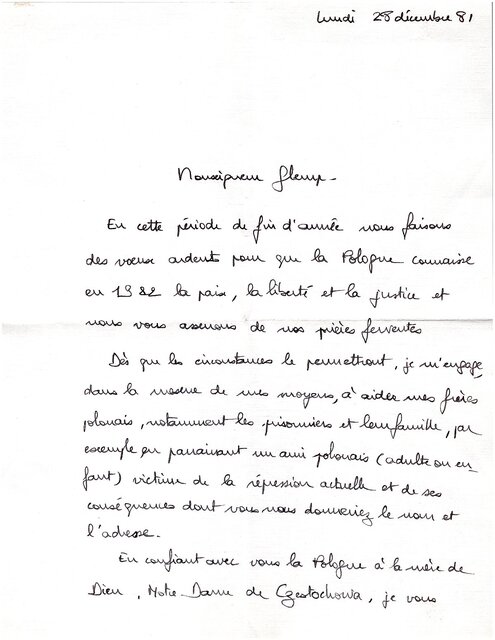 lundi 28 décembre 81
Monseigneur Glemp -
En cette période de fin d'année nous faisons
des voeux ardents pour que la Pologne connaisse
en 1982 la paix, la liberté et la justice et
nous vous assurons de nos prières ferventes
Dès que les circonstances le permettront, je m'engage,
dans la mesure de mes moyens, à aider mes frères
polonais, notamment les prisonniers et leur famille, par
exemple en parrainant un ami polonais (adulte ou en-
fant) victime de la répression actuelle et de ses
conséquences dont vous nous donneriez le nom et
l'adresse.
En confiant avec vous la Pologne à la mère de
Dieu, Notre-Dame de Czestochowa, je vous